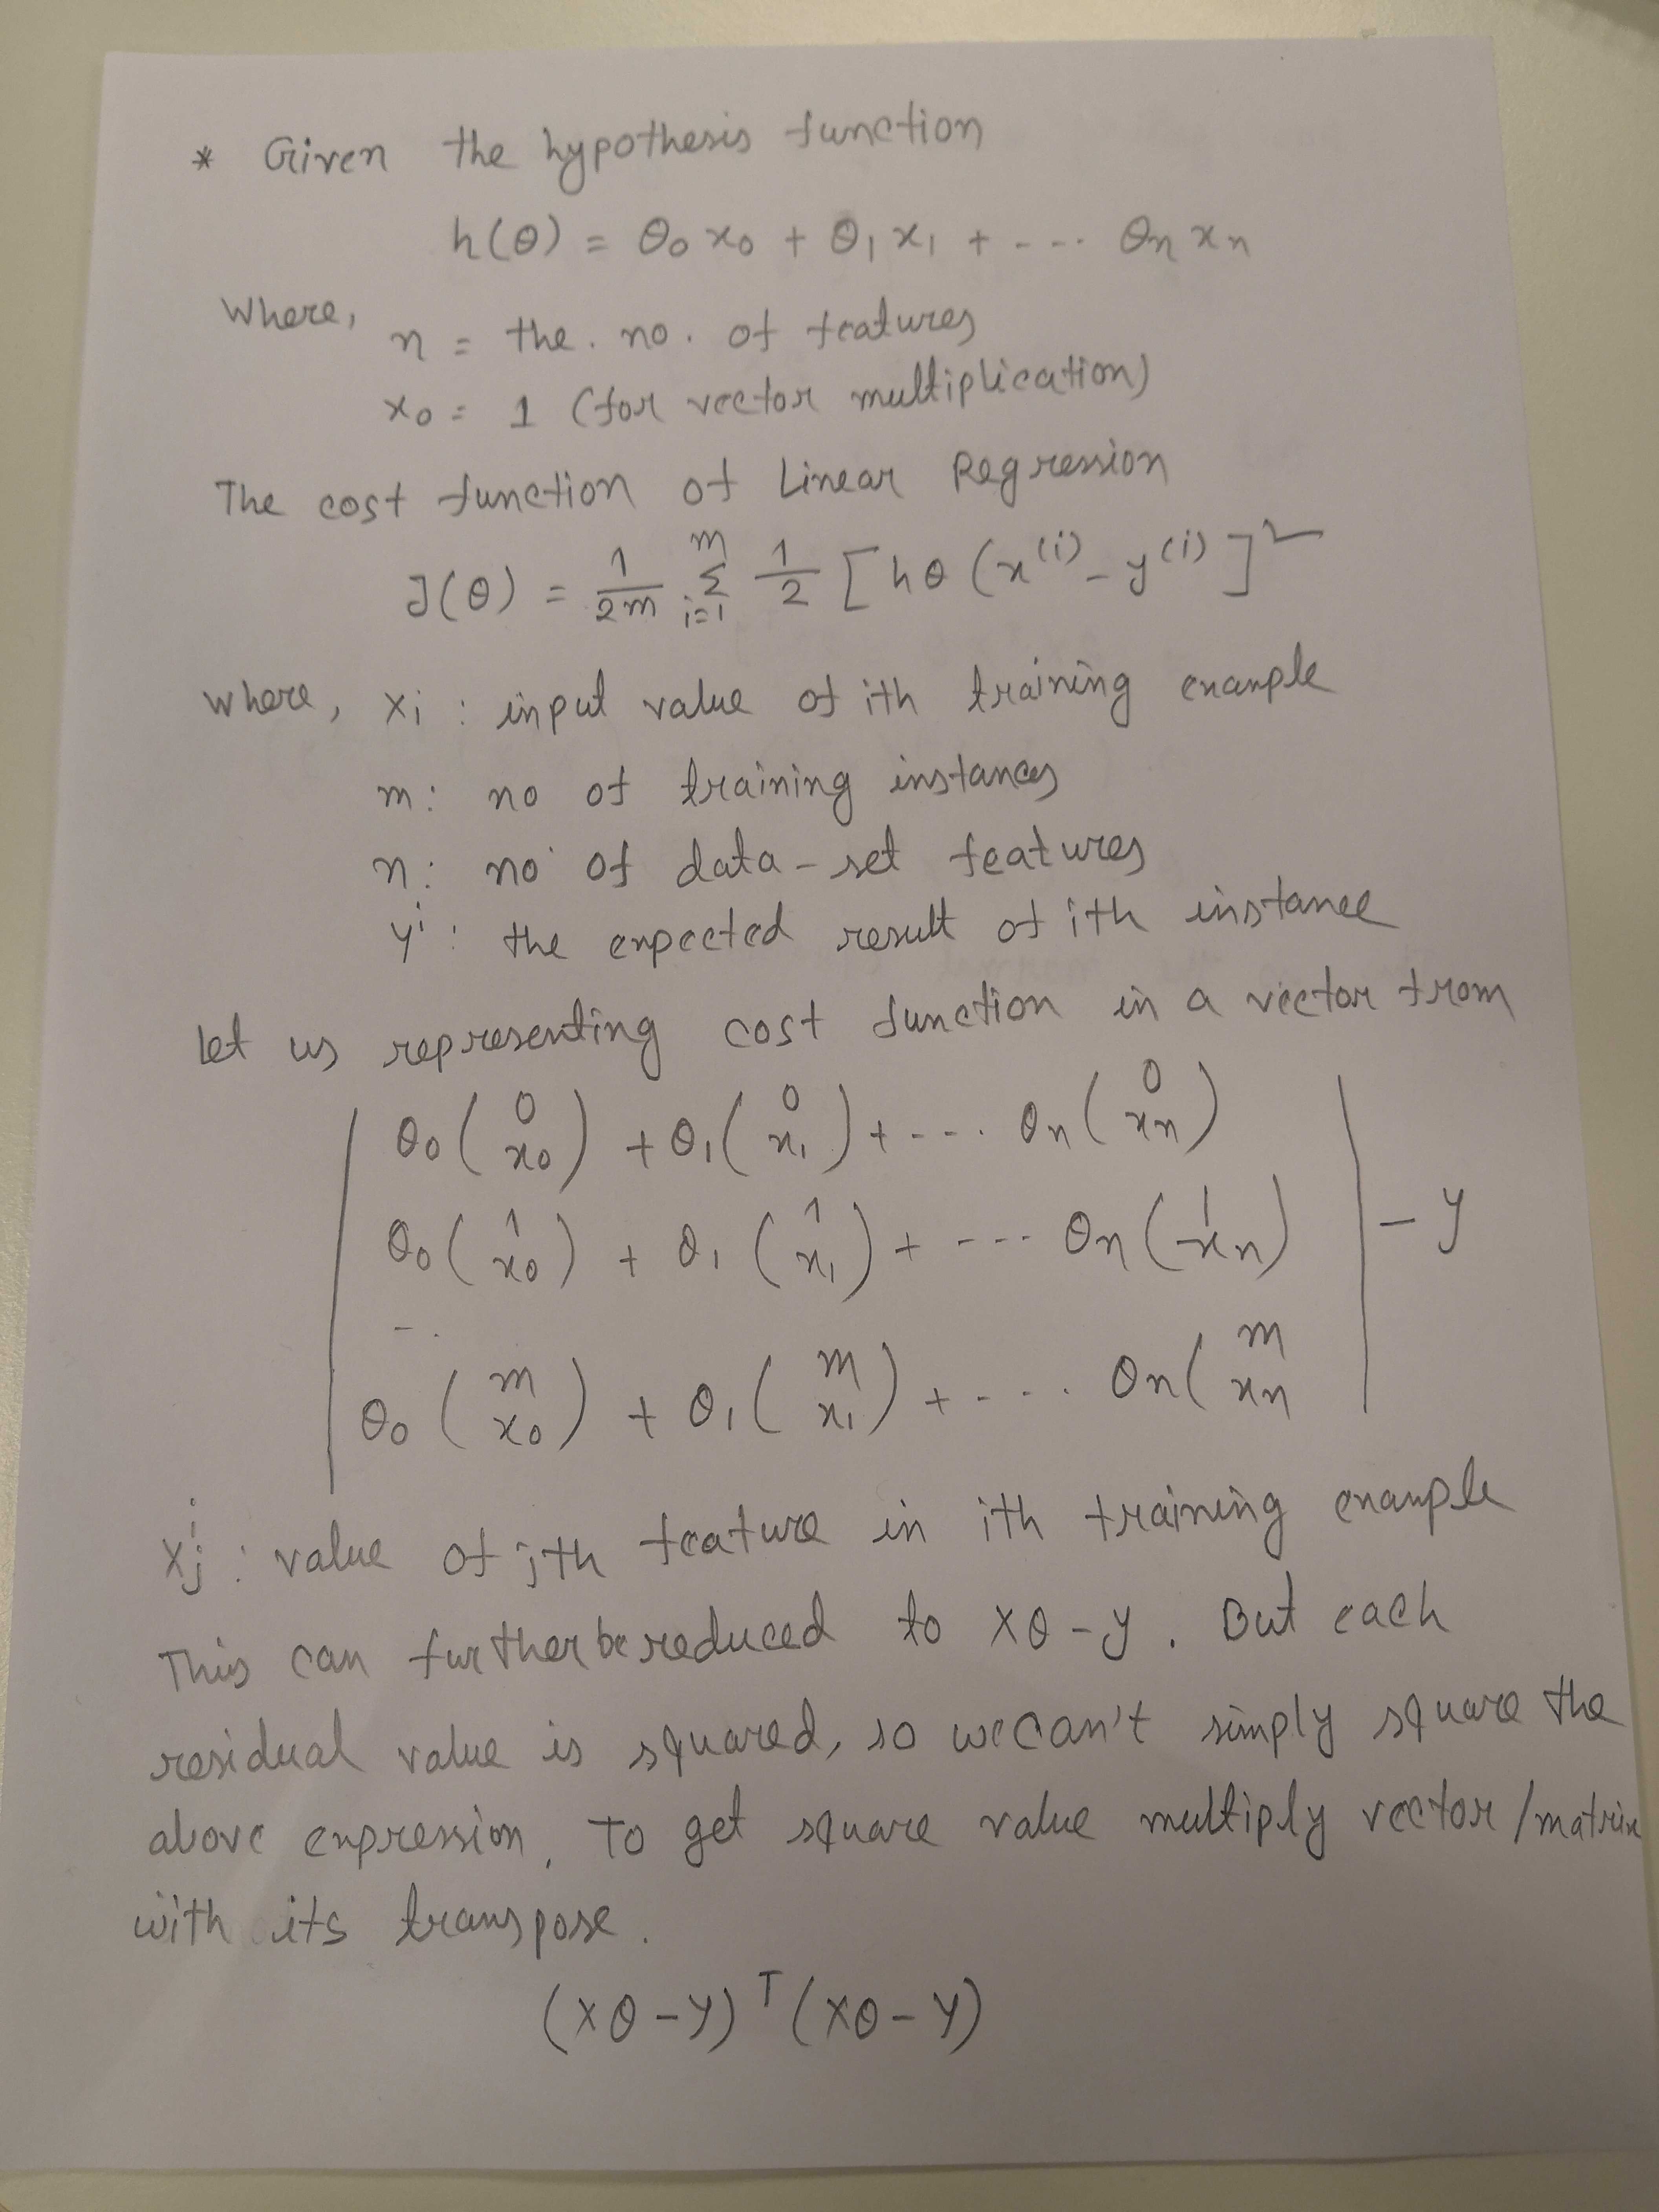 * Given the hypothesis function
h(θ) = θ₀ x₀ + θ₁ x₁ + - - -. θn xn
Where,
n = the. no. of features
x₀ = 1 (for vector multiplication)
The cost function of Linear Regression
J(θ) = 1/2m Σ_{i=1}^{m} 1/2 [hθ (x⁽ⁱ⁾ - y⁽ⁱ⁾]²
where, xi : input value of ith training example
m: no of training instances
n: no of data-set features
yⁱ : the expected result of ith instance
Let us representing cost function in a vector from
| θ₀ (0 x₀) + θ₁ (0 x₁) + - - -. θn (0 xn) |
| θ₀ (1 x₀) + θ₁ (1 x₁) + - - - - θn (1 xn) | - y
- .
| θ₀ (m x₀) + θ₁ (m x₁) + - - - . θn ( m xn |
xⁱj : value of jth feature in ith training example
This can further be reduced to xθ - y . But each
residual value is squared, so we can't simply square the
above expression. To get square value multiply vector/matrix
with its transpose.
(xθ - y)ᵀ (xθ - y)